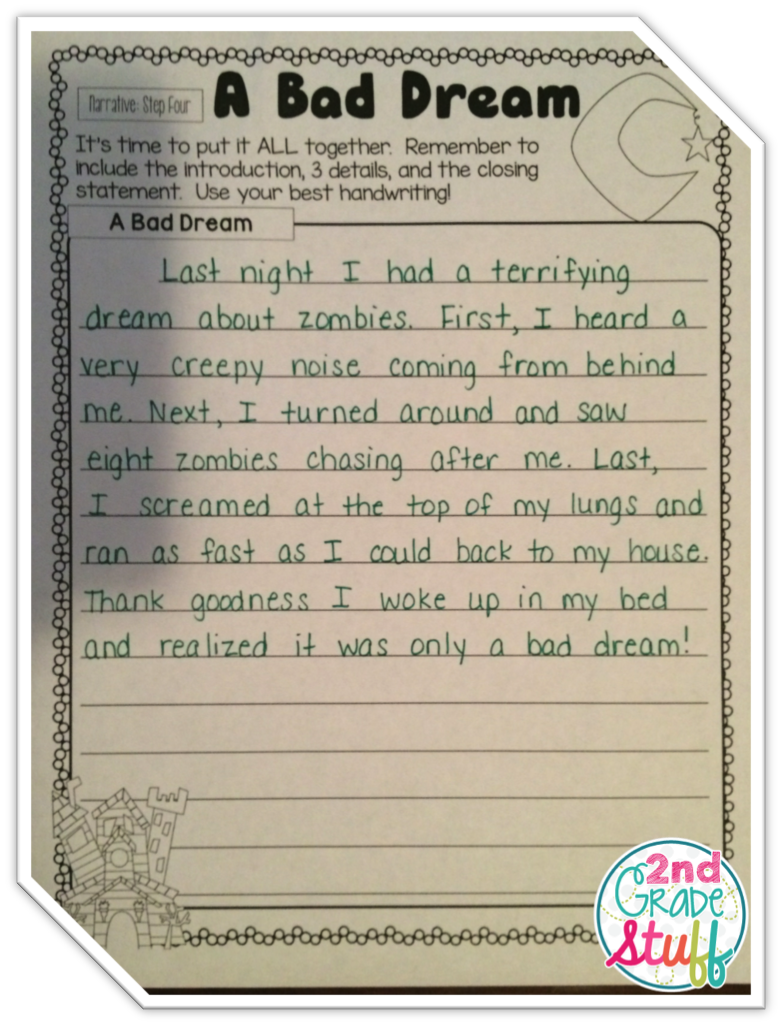 Narrative: Step Four
A Bad Dream
It's time to put it ALL together. Remember to
include the introduction, 3 details, and the closing
statement. Use your best handwriting!
A Bad Dream
Last night I had a terrifying
dream about zombies. First, I heard a
very creepy noise coming from behind
me. Next, I turned around and saw
eight zombies chasing after me. Last,
I screamed at the top of my lungs and
ran as fast as I could back to my house.
Thank goodness I woke up in my bed
and realized it was only a bad dream!
2nd
Grade
Stuff